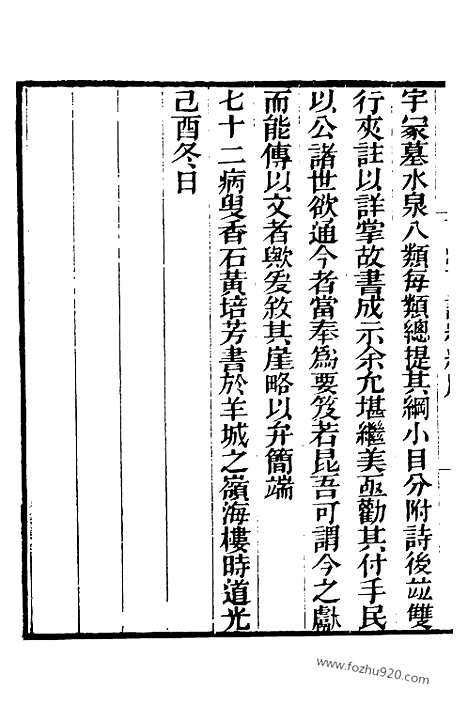 宇冢墓水泉八類每類總提其綱小目分附詩後竝雙
行夾註以詳掌故書成示余允堪繼美亟勸其付手民
以公諸世欲通今者當奉爲要笈若昆吾可謂今之獻
而能傳以文者歟爰敘其崖略以弁簡端
七十二病叟香石黃培芳書於羊城之嶺海樓時道光
己酉冬日
www.fozhu920.com